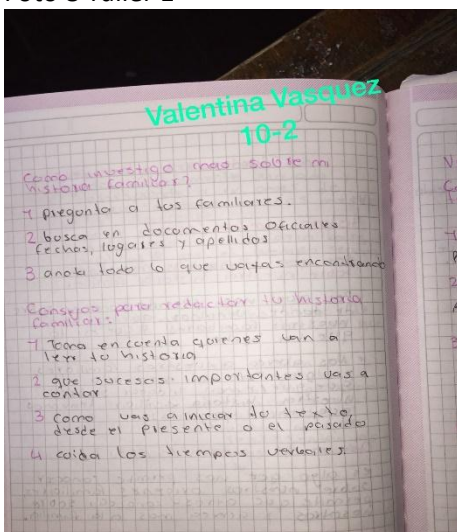 Valentina Vasquez
10-2
Como investigo mas sobre mi
historia familiar?
1 pregunta a tus familiares.
2 busca en documentos oficiales
fechas, lugares y apellidos
3 anota todo lo que vayas encontrando
Consejos para redactar tu historia
familiar:
1 Toma en cuenta quienes van a
leer tu historia
2 que sucesos importantes vas a
contar
3 como vas a iniciar tu texto,
desde el presente o el pasado
4 cuida los tiempos verbales.